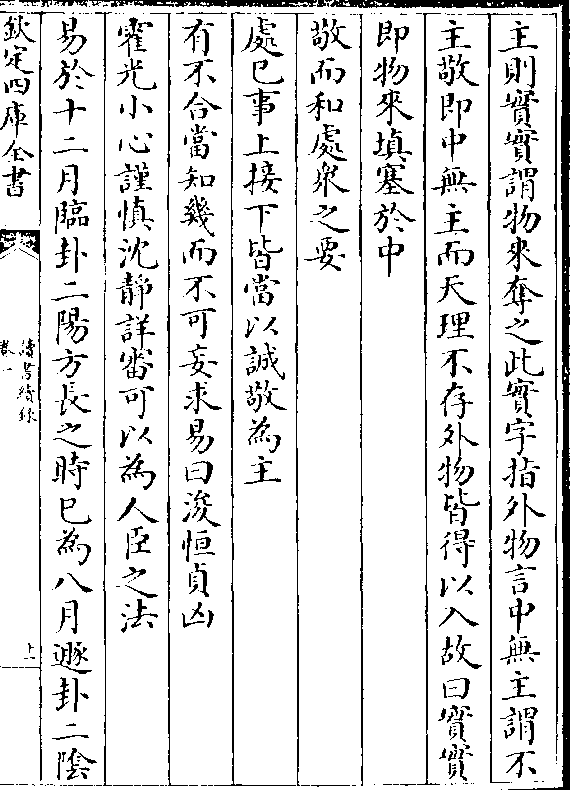 主則實實謂物來奪之此實字指外物言中無主謂不
主敬即中無主而天理不存外物皆得以入故曰實實
即物來填塞於中
敬而和處衆之要
處已事上接下皆當以誠敬為主
有不合當知幾而不可妄求易曰浚恒貞凶
霍光小心謹慎沈靜詳審可以為人臣之法
易於十二月臨卦二陽方長之時已為八月遯卦二陰
欽定四庫全書
讀書續錄
卷一
上